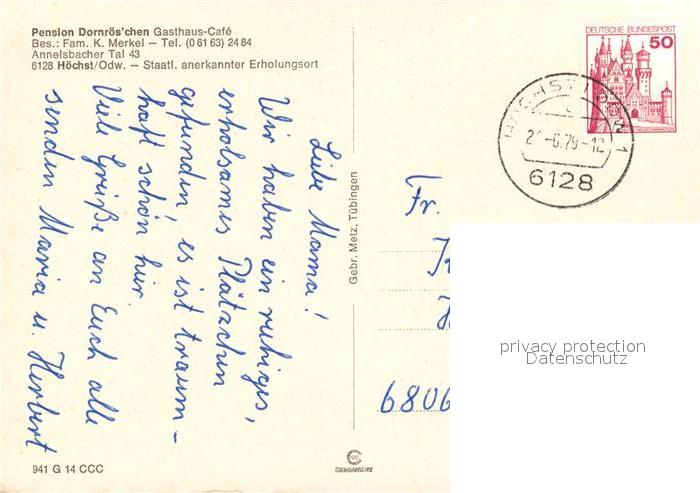 Pension Dornrös'chen Gasthaus-Café
Bes.: Fam. K. Merkel – Tel. (0 61 63) 24 84
Annelsbacher Tal 43
6128 Höchst/Odw. – Staatl. anerkannter Erholungsort
Liebe Mama!
Wir haben ein ruhiges,
erholsames Plätzchen
gefunden, es ist traum-
haft schön hier.
Viele Grüße an Euch alle
senden Maria u. Herbert
941 G 14 CCC
Gebr. Metz, Tübingen
DEUTSCHE BUNDESPOST
50
6.79-12
6128
Fr.
6806
privacy protection
Datenschutz